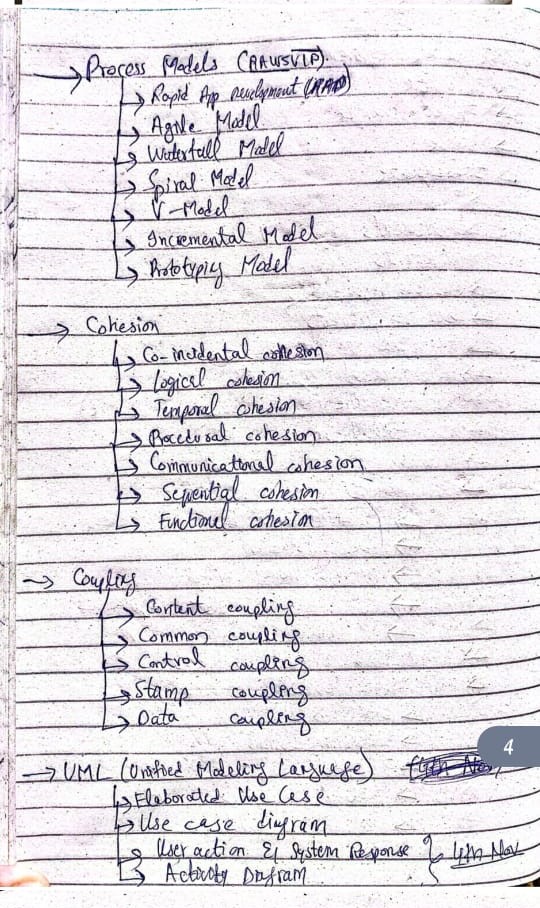 → Process Models (RAWSVIP).
→ Rapid App Development (RAD)
→ Agile Model
→ Waterfall Model
→ Spiral Model
→ V-Model
→ Incremental Model
→ Prototyping Model
→ Cohesion
→ Co-incidental cohesion
→ Logical cohesion
→ Temporal cohesion
→ Procedural cohesion
→ Communicational cohesion
→ Sequential cohesion
→ Functional cohesion
→ Coupling
→ Content coupling
→ Common coupling
→ Control coupling
→ Stamp coupling
→ Data coupling
4
→ UML (Unified Modeling Language)
→ Elaborated Use Case
→ Use case diagram
→ User action & System Response } 4th Nov
→ Activity Diagram